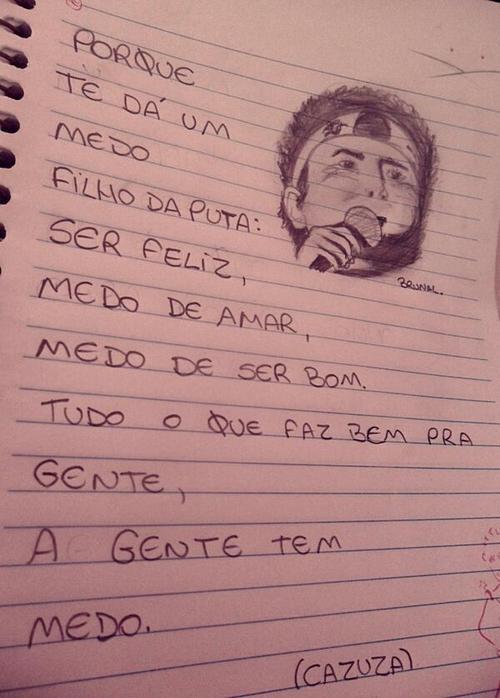 PORQUE
TE DÁ UM
MEDO
FILHO DA PUTA:
SER FELIZ,
MEDO DE AMAR,
MEDO DE SER BOM.
TUDO O QUE FAZ BEM PRA
GENTE,
A GENTE TEM
MEDO.
(CAZUZA)